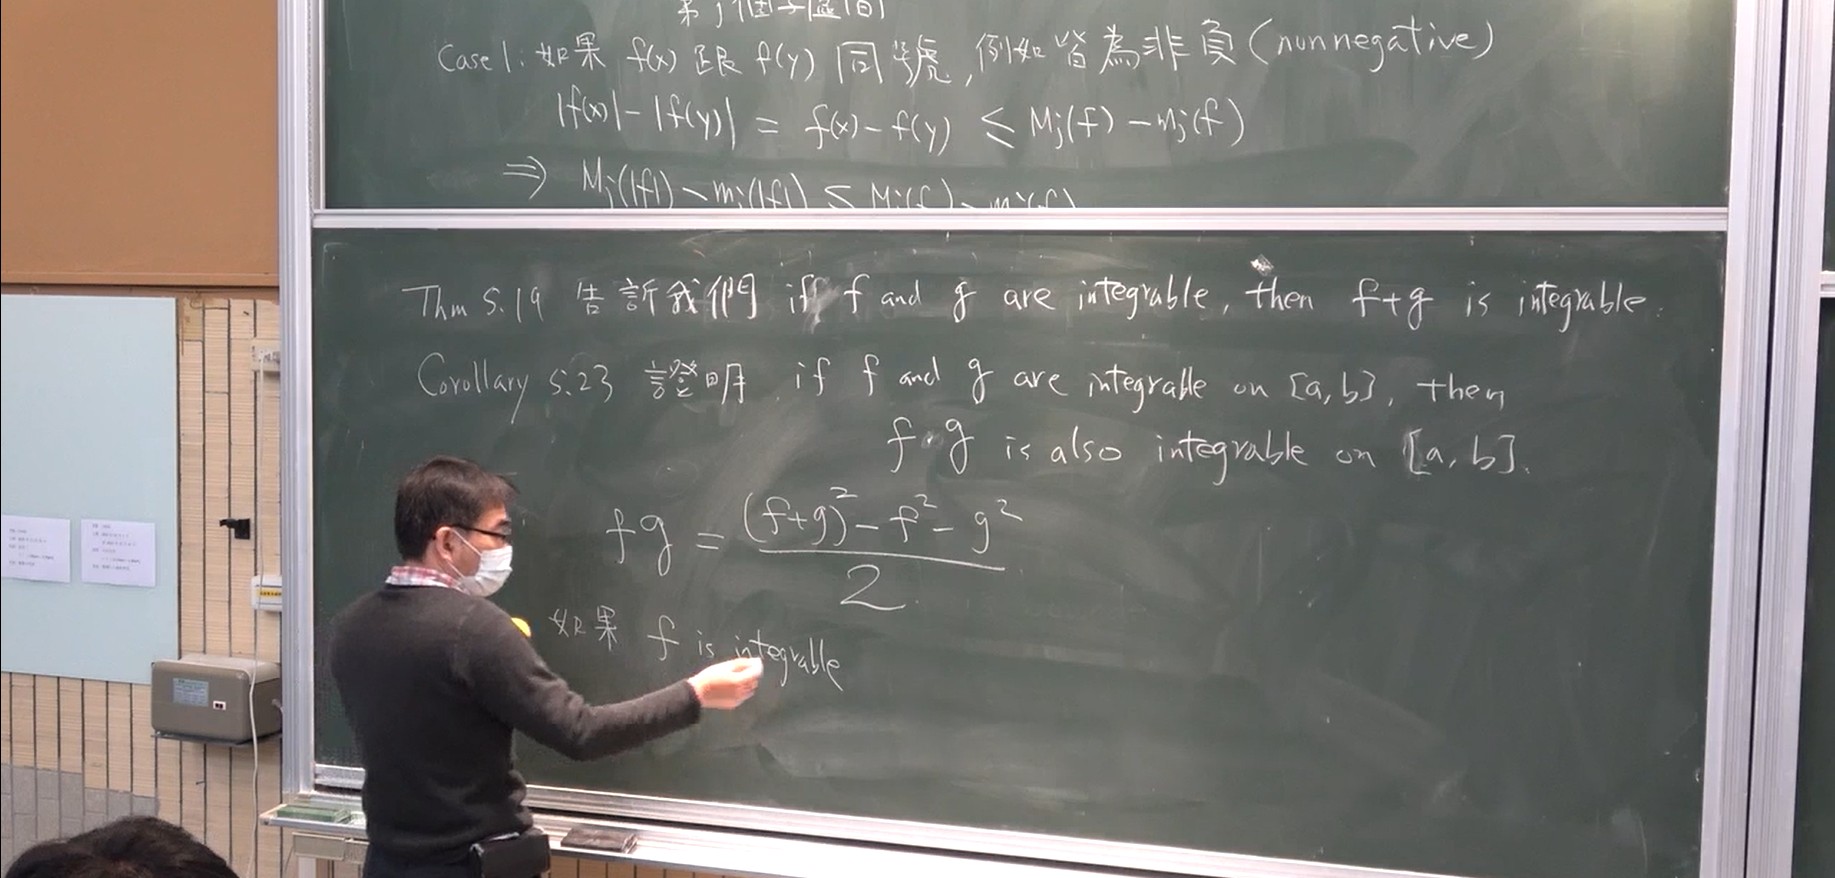 第 j 個子區間
Case 1: 如果 f(x) 跟 f(y) 同號, 例如皆為非負 (nonnegative)
|f(x)| - |f(y)| = f(x) - f(y) ≤ Mj(f) - mj(f)
⇒ Mj(|f|) - mj(|f|) ≤ Mj(f) - mj(f)
Thm 5.19 告訴我們 iff f and g are integrable, then f+g is integrable.
Corollary 5.23 證明, if f and g are integrable on [a, b], then
f·g is also integrable on [a, b].
fg = \frac{(f+g)^2 - f^2 - g^2}{2}
如果 f is integrable